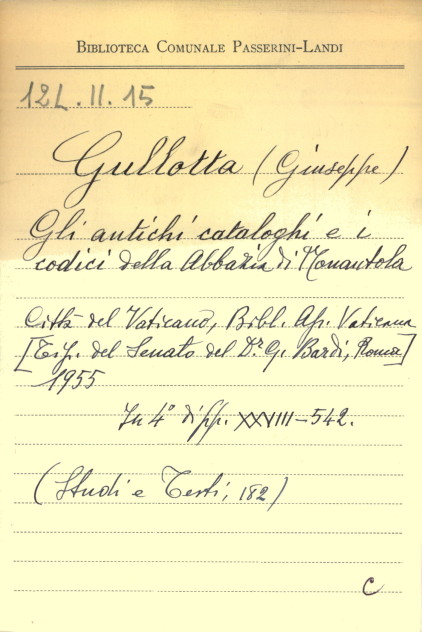 BIBLIOTECA COMUNALE PASSERINI-LANDI
12L.II.15
Gullotta (Giuseppe)
Gli antichi cataloghi e i
codici della Abbazia di Nonantola
Città del Vaticano, Bibl. Ap. Vaticana
[Tip. del Senato del Dr. G. Bardi, Roma]
1955
In 4° di pp. XXVIII-542.
(Studi e Testi, 182)
C